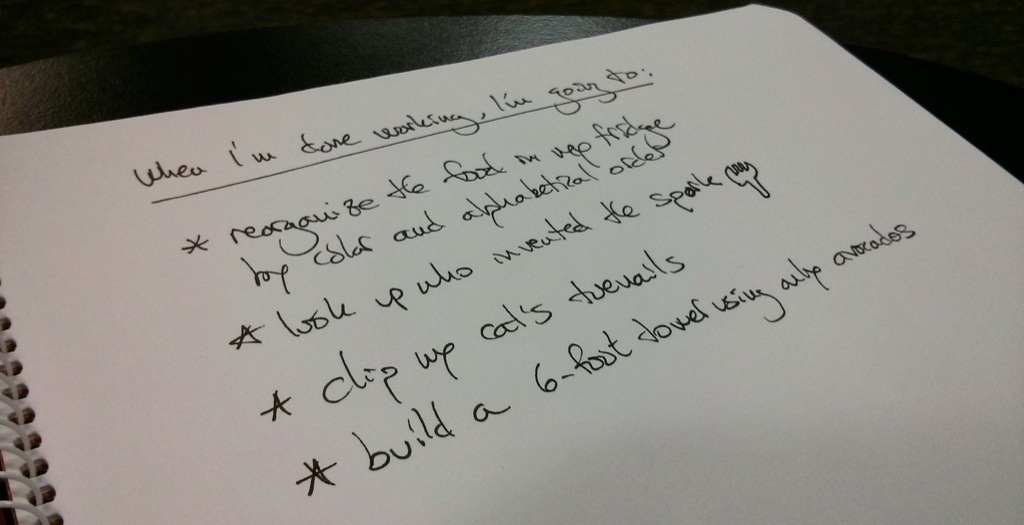 When I'm done working, I'm going to:
* reorganize the food in my fridge
by color and alphabetical order
* look up who invented the spork
* clip my cat's toenails
* build a 6-foot tower using only avocados